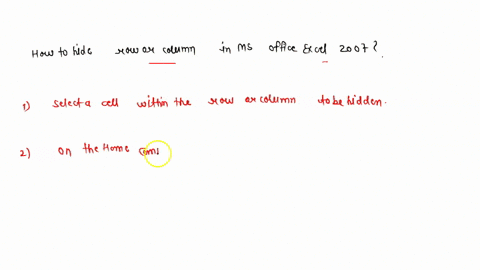 How to hide row or column in MS office Excel 2007?
1) select a cell within the row or column to be hidden.
2) on the Home